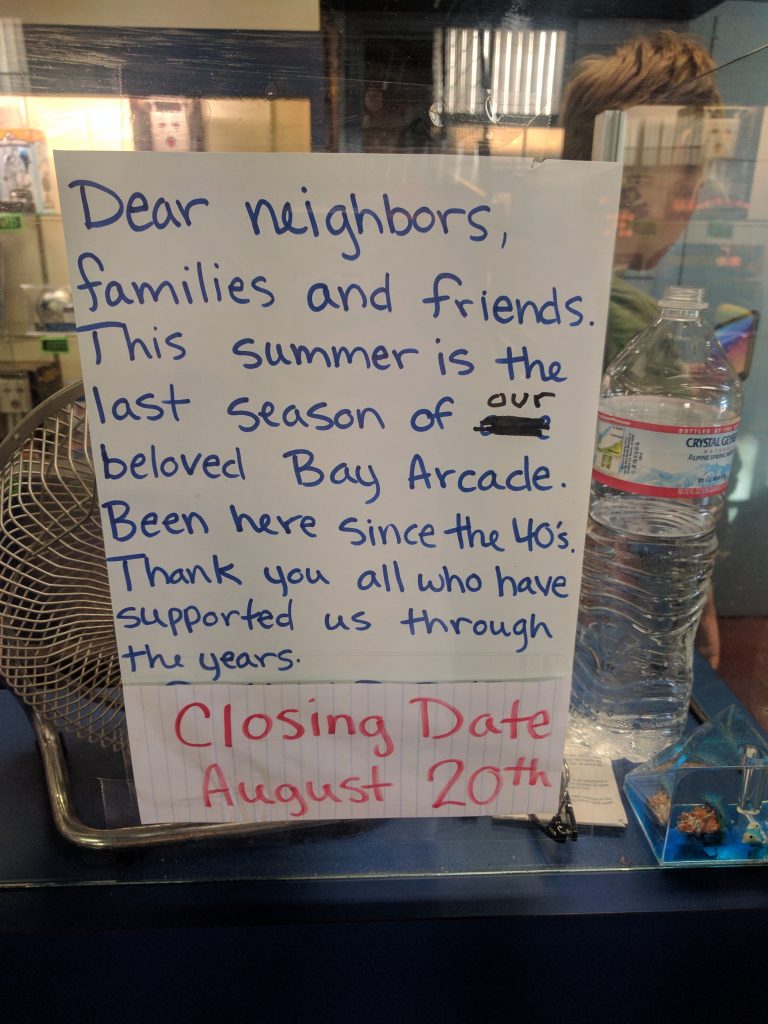 Dear neighbors,
families and friends.
This summer is the
last season of our
beloved Bay Arcade.
Been here since the 40's.
Thank you all who have
supported us through
the years.
Closing Date
August 20th
BOTTLED AT THE
CRYSTAL GEYSER
NATURAL
ALPINE SPRING